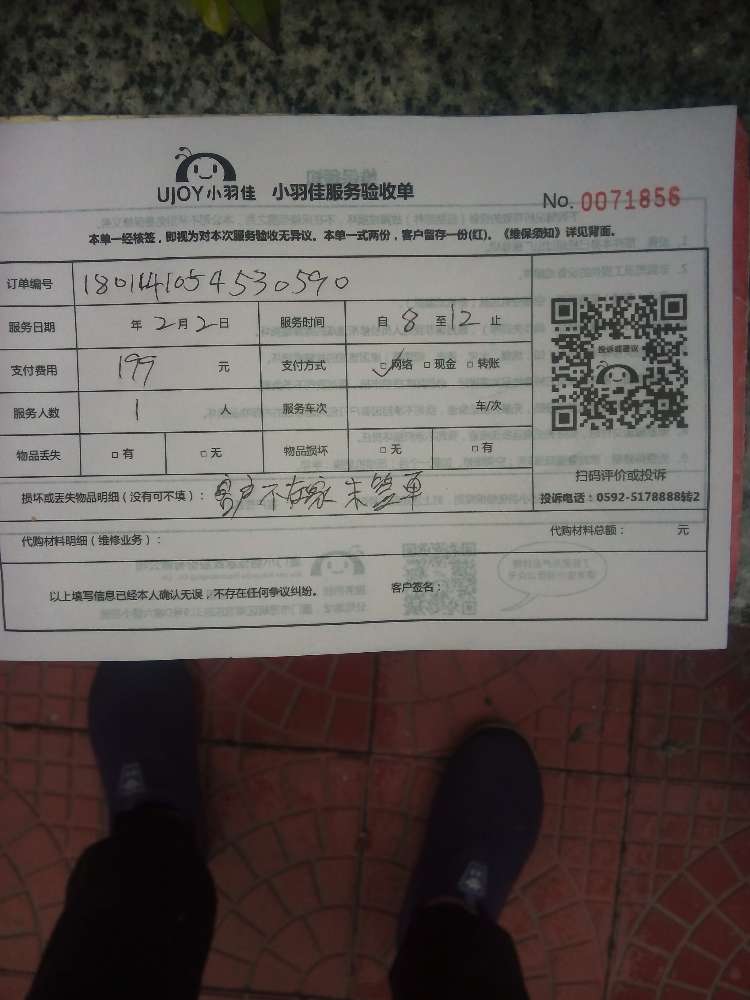 UJOY小羽佳 小羽佳服务验收单
No. 0071856
本单一经核签，即视为对本次服务验收无异议。本单一式两份，客户留存一份(红)。《维保须知》详见背面。
订单编号 1801141054530590
服务日期 年 2 月 2 日 服务时间 自 8 至 12 止
支付费用 199 元 支付方式 ☑网络 □现金 □转账
服务人数 1 人 服务车次 车/次
物品丢失 □有 □无 物品损坏 □无 □有
投诉或建议
扫码评价或投诉
损坏或丢失物品明细（没有可不填）：客户不在家 未签单
投诉电话：0592-5178888转2
代购材料明细（维修业务）： 代购材料总额： 元
以上填写信息已经本人确认无误，不存在任何争议纠纷。 客户签名：